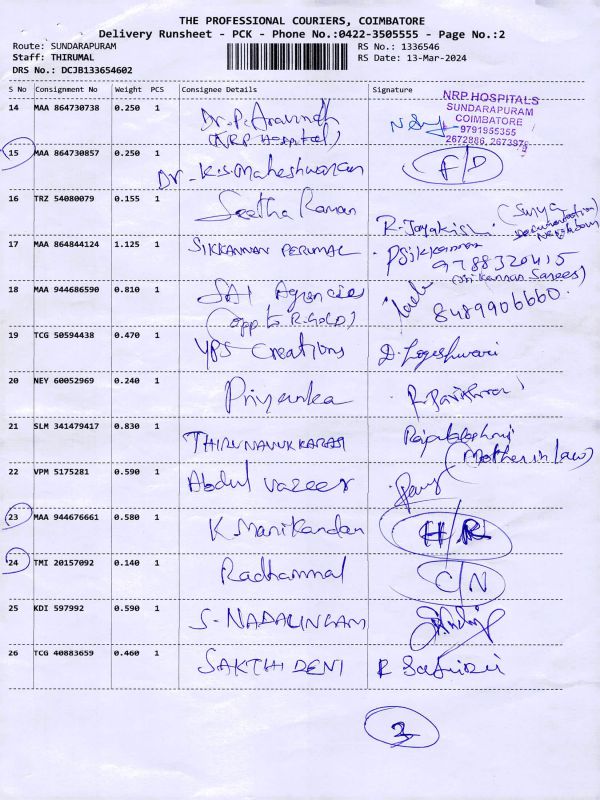 THE PROFESSIONAL COURIERS, COIMBATORE
Delivery Runsheet - PCK - Phone No.:0422-3505555 - Page No.:2
Route: SUNDARAPURAM
RS No.: 1336546
Staff: THIRUMAL
RS Date: 13-Mar-2024
DRS No.: DCJB133654602
S No Consignment No Weight PCS Consignee Details Signature
14 MAA 864730738 0.250 1 Dr. P. Aravindh
(NRP Hospital)
NRP HOSPITALS
SUNDARAPURAM
COIMBATORE
9791955355
2672886, 2673976
15 MAA 864730857 0.250 1 Dr. K.S. Maheshwaran F/D
16 TRZ 54080079 0.155 1 Seetha Raman R. Jayakis
(Surya
Documentation)
Neighbour
17 MAA 864844124 1.125 1 SIKKANNAN PERUMAL PSikkannan
9788320415
(Sri Kannan Sarees)
18 MAA 944686590 0.810 1 SAI Agencies
(opp to R.GOLD)
8489906660.
19 TCG 50594438 0.470 1 YPS Creations D. Logeshwari
20 NEY 60052969 0.240 1 Priyanka
21 SLM 341479417 0.830 1 THIRUNAVUKKARASI
(Mother in Law)
22 VPM 5175281 0.590 1 Abdul Vazeer
23 MAA 944676661 0.580 1 K. Manikandan H/R
24 TMI 20157092 0.140 1 Radhammal C/N
25 KDI 597992 0.590 1 S-NADALINGAM
26 TCG 40883659 0.460 1 SAKTHI DENI R
3